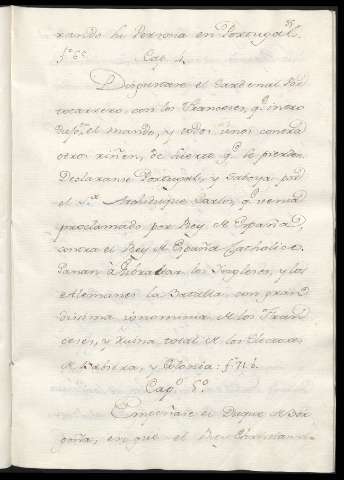 35
rando su Persona en Portugal.
fº 6º
Cap. 4.
Disgustase el Cardenal Por
tocarrero, con los Franceses, qe intro
duxo, el mando, y todos unos contra
otros riñen, de suerte qe se pierden
Declaranse Portugal, y Saboya por
el Sr. Archiduque Carlos, qe venia
proclamado por Rey de España,
contra el Rey de España Catholico.
Ganan à Gibraltar los Yngleses, y los
Alemanes la Batalla, con gran
dissima ignominia de los Fran
ceses, y ruina total de los Electores
de Babiera, y Colonia: fº 71. b.
Capº 5º.
Empeñase el Duque de Bor
goña, en que el Rey Christianis